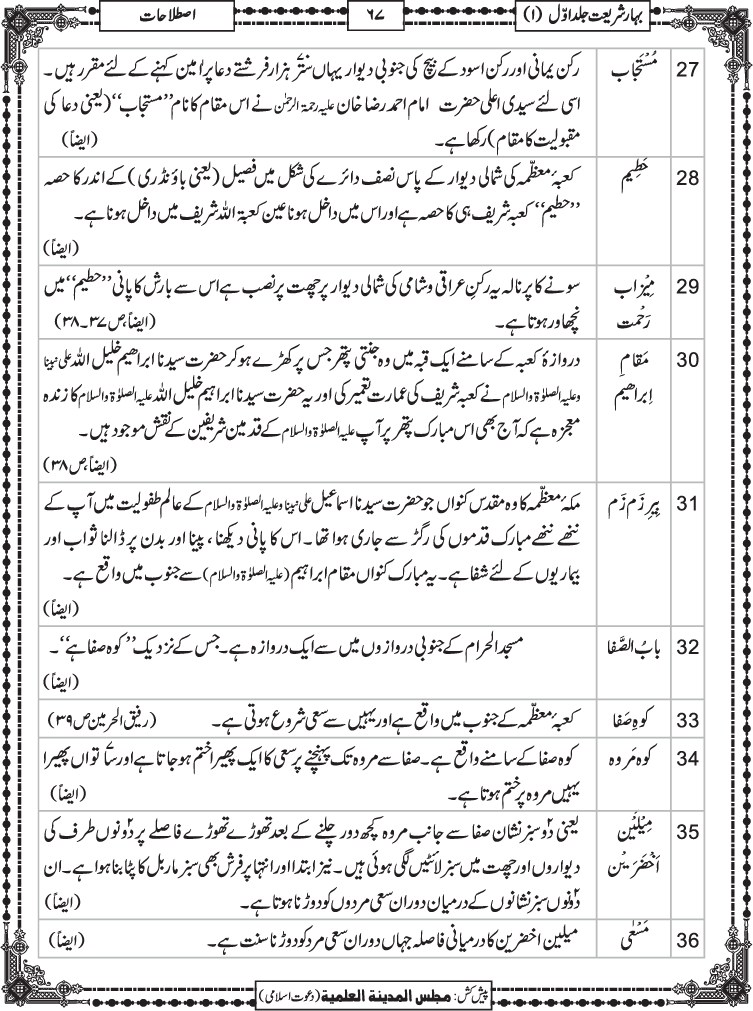 بہار شریعت جلد اوّل (۱)
۶۷
اصطلاحات
27 مُسْتَجَاب رکن یمانی اور رکن اسود کے بیچ کی جنوبی دیوار یہاں ستّر ہزار فرشتے دعا پر اٰمین کہنے کے لئے مقرر ہیں ۔
اسی لئے سیدی اعلیٰ حضرت امام احمد رضا خان علیہ رحمۃ الرحمٰن نے اس مقام کا نام ”مستجاب“ (یعنی دعا کی
مقبولیت کا مقام) رکھا ہے۔ (ایضاً)
28 حَطِیم کعبۂ معظّمہ کی شمالی دیوار کے پاس نصف دائرے کی شکل میں فصیل (یعنی باؤنڈری) کے اندر کا حصہ
”حطیم“ کعبہ شریف ہی کا حصہ ہے اور اس میں داخل ہونا عین کعبۃ اللہ شریف میں داخل ہونا ہے۔
(ایضاً)
29 مِیْزاب سونے کا پرنالہ یہ رکنِ عراقی و شامی کی شمالی دیوار پر چھت پر نصب ہے اس سے بارش کا پانی ”حطیم“ میں
رَحْمت نچھاور ہوتا ہے۔ (ایضاً، ص ۳۷۔۳۸)
30 مَقَامِ دروازۂ کعبہ کے سامنے ایک قبہ میں وہ جنتی پتھر جس پر کھڑے ہو کر حضرت سیدنا ابراھیم خلیل اللہ علی نبینا
اِبراھیم وعلیہ الصلوٰۃ والسلام نے کعبہ شریف کی عمارت تعمیر کی اور یہ حضرت سیدنا ابراہیم خلیل اللہ علیہ الصلوٰۃ والسلام کا زندہ
معجزہ ہے کہ آج بھی اس مبارک پتھر پر آپ علیہ الصلوٰۃ والسلام کے قدمین شریفین کے نقش موجود ہیں۔
(ایضاً، ص ۳۸)
31 بِیرِ زَم زَم مکۂ معظّمہ کا وہ مقدس کنواں جو حضرت سیدنا اسماعیل علی نبینا وعلیہ الصلوٰۃ والسلام کے عالم طفولیت میں آپ کے
ننھے ننھے مبارک قدموں کی رگڑ سے جاری ہوا تھا ۔ اس کا پانی دیکھنا ، پینا اور بدن پر ڈالنا ثواب اور
بیماریوں کے لئے شفا ہے۔ یہ مبارک کنواں مقام ابراہیم (علیہ الصلوٰۃ والسلام) سے جنوب میں واقع ہے۔
(ایضاً)
32 بابُ الصَّفا مسجد الحرام کے جنوبی دروازوں میں سے ایک دروازہ ہے۔ جس کے نزدیک ”کوہ صفا ہے“ ۔
(ایضاً)
33 کوہِ صَفا کعبۂ معظّمہ کے جنوب میں واقع ہے اور یہیں سے سعی شروع ہوتی ہے۔ (رفیق الحرمین ص ۳۹)
34 کوہ مَروہ کوہ صفا کے سامنے واقع ہے۔ صفا سے مروہ تک پہنچنے پر سعی کا ایک پھیرا ختم ہو جاتا ہے اور ساتواں پھیرا
یہیں مروہ پر ختم ہوتا ہے۔ (ایضاً)
35 مِیْلَیْن یعنی دو سبز نشان صفا سے جانب مروہ کچھ دور چلنے کے بعد تھوڑے تھوڑے فاصلے پر دونوں طرف کی
اَخْضَرَیْن دیواروں اور چھت میں سبز لائٹیں لگی ہوئی ہیں۔ نیز ابتدا اور انتہا پر فرش بھی سبز ماربل کا پٹا بنا ہوا ہے۔ ان
دونوں سبز نشانوں کے درمیان دوران سعی مردوں کو دوڑنا ہوتا ہے۔ (ایضاً)
36 مَسْعٰی میلین اخضرین کا درمیانی فاصلہ جہاں دوران سعی مرد کو دوڑنا سنت ہے۔ (ایضاً)
پیش کش: مجلس المدینۃ العلمیۃ (دعوت اسلامی)